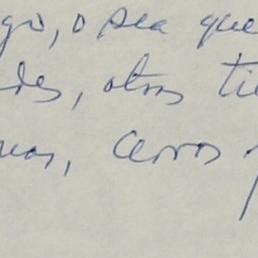 go, o sea que
des, otros ti
uas, cerros